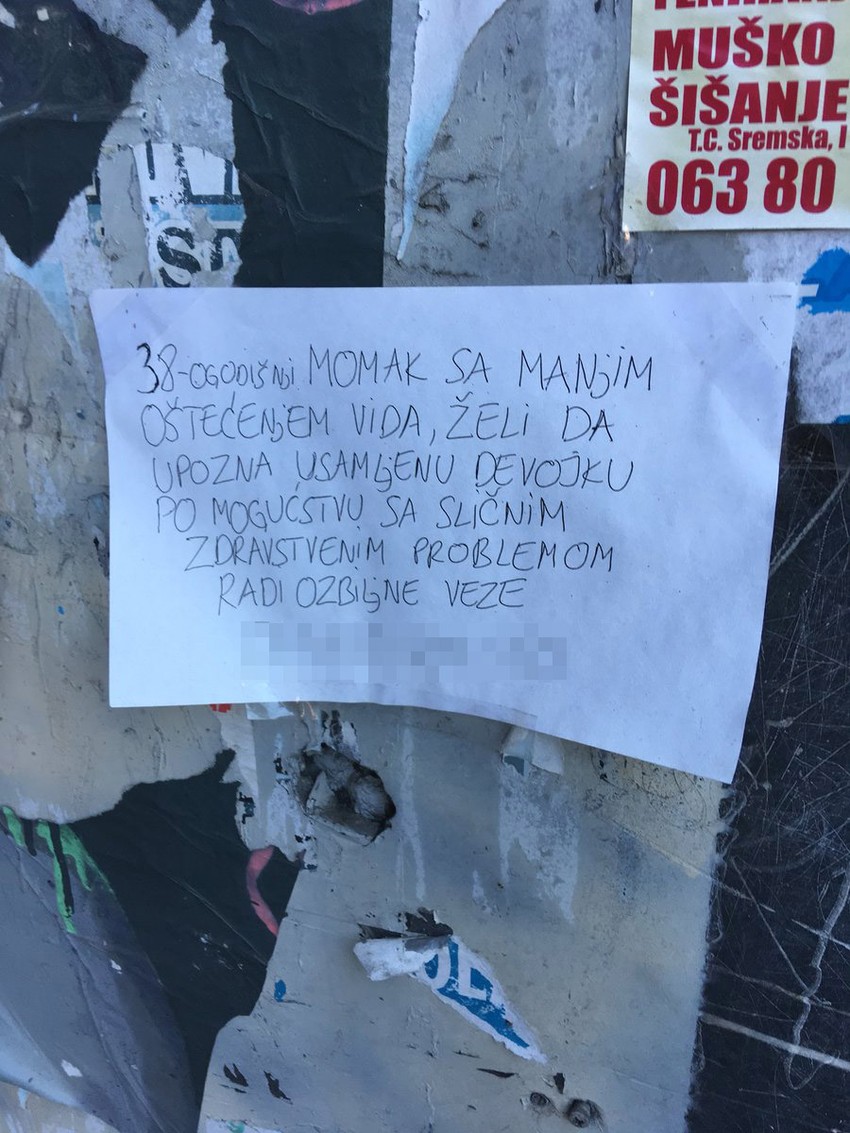 MUŠKO
ŠIŠANJE
T.C. Sremska, I
063 80
38-OGODIŠNjI MOMAK SA MANjIM
OŠTEĆENjEM VIDA, ŽELI DA
UPOZNA USAMLjENU DEVOJKU
PO MOGUĆSTVU SA SLIČNIM
ZDRAVSTVENIM PROBLEMOM
RADI OZBILjNE VEZE